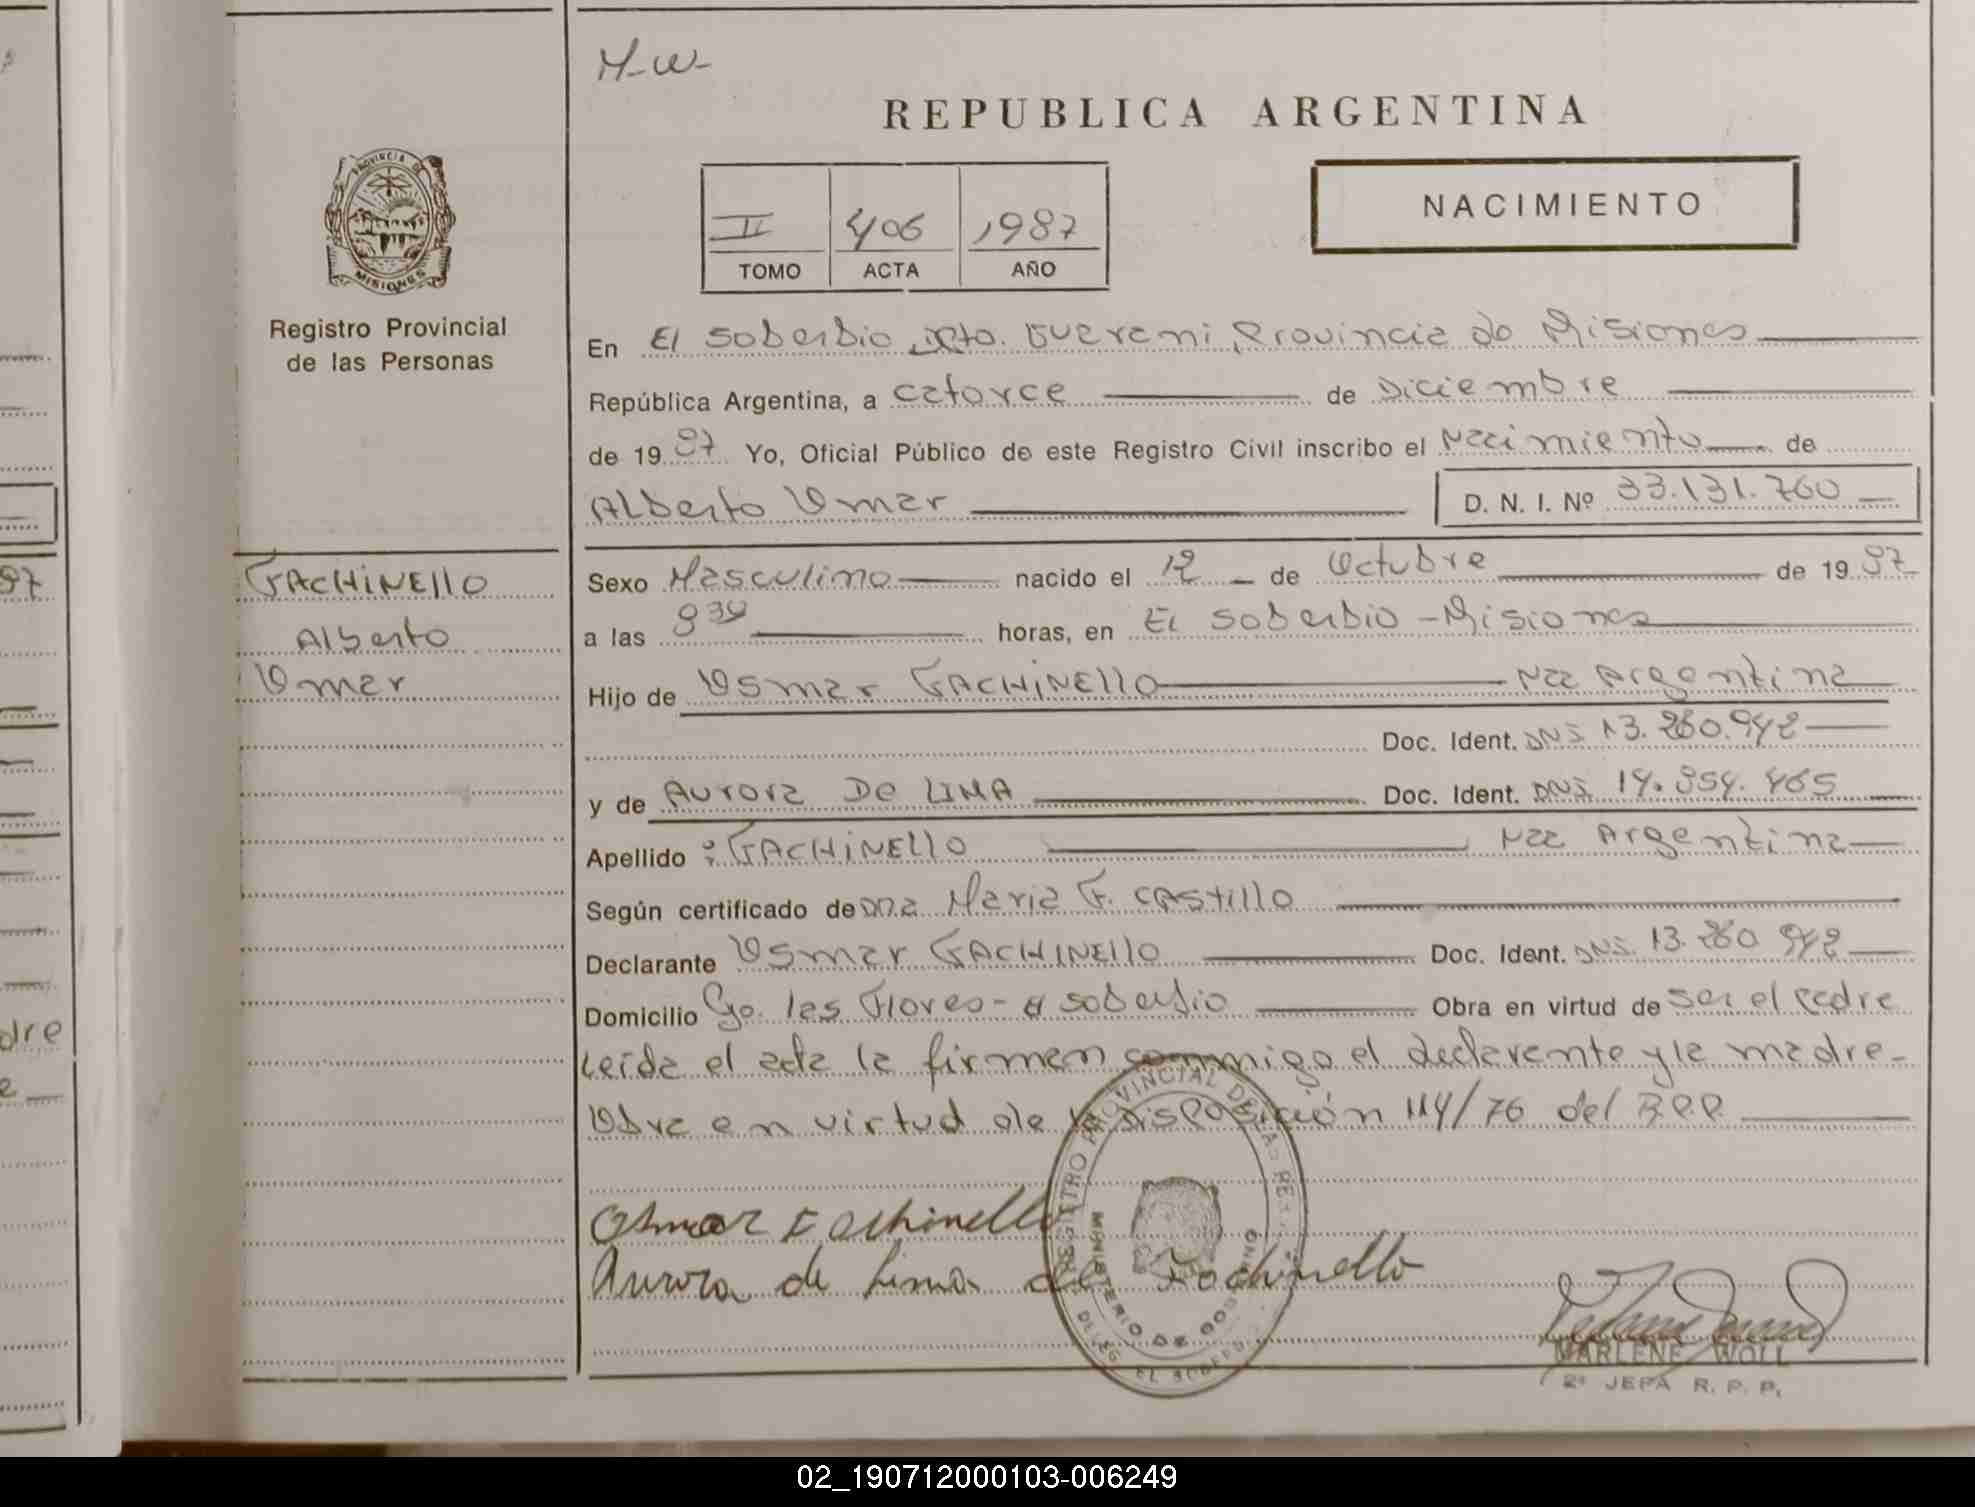 M-W-
REPUBLICA ARGENTINA
PROVINCIA DE
MISIONES
II 406 1987
TOMO ACTA AÑO
NACIMIENTO
Registro Provincial
de las Personas
En El Soberbio, Dpto. Guarani, Provincia de Misiones
República Argentina, a catorce de Diciembre
de 19 87 Yo, Oficial Público de este Registro Civil inscribo el Nacimiento de
Alberto Omar D. N. I. Nº 33.131.760
GACHINELLO
Alberto
Omar
Sexo Masculino nacido el 12 de Octubre de 19 87
a las 8 30 horas, en El Soberbio - Misiones
Hijo de Osmar GACHINELLO Nac Argentina
Doc. Ident. DNI 13.280.942
y de Aurora DE LIMA Doc. Ident. DNI. 14.954.465
Apellido : GACHINELLO Nac Argentina
Según certificado de Dña Maria F. CASTILLO
Declarante Osmar GACHINELLO Doc. Ident. DNI. 13.280 942
Domicilio Go. las Flores - El Soberbio Obra en virtud de ser el padre
Leída el acta la firman conmigo el declarante y la madre-
Obra en virtud de la Disposición 114/76 del R.P.P.
Osmar Gachinello
Aurora de Lima de Gachinello
REGISTRO PROVINCIAL DE LAS PER
MINISTERIO DE GOBIERNO
DELEG. EL SOBERBIO
MARLENE WOLL
2ª JEFA R. P. P.
97
dre
e
02_190712000103-006249